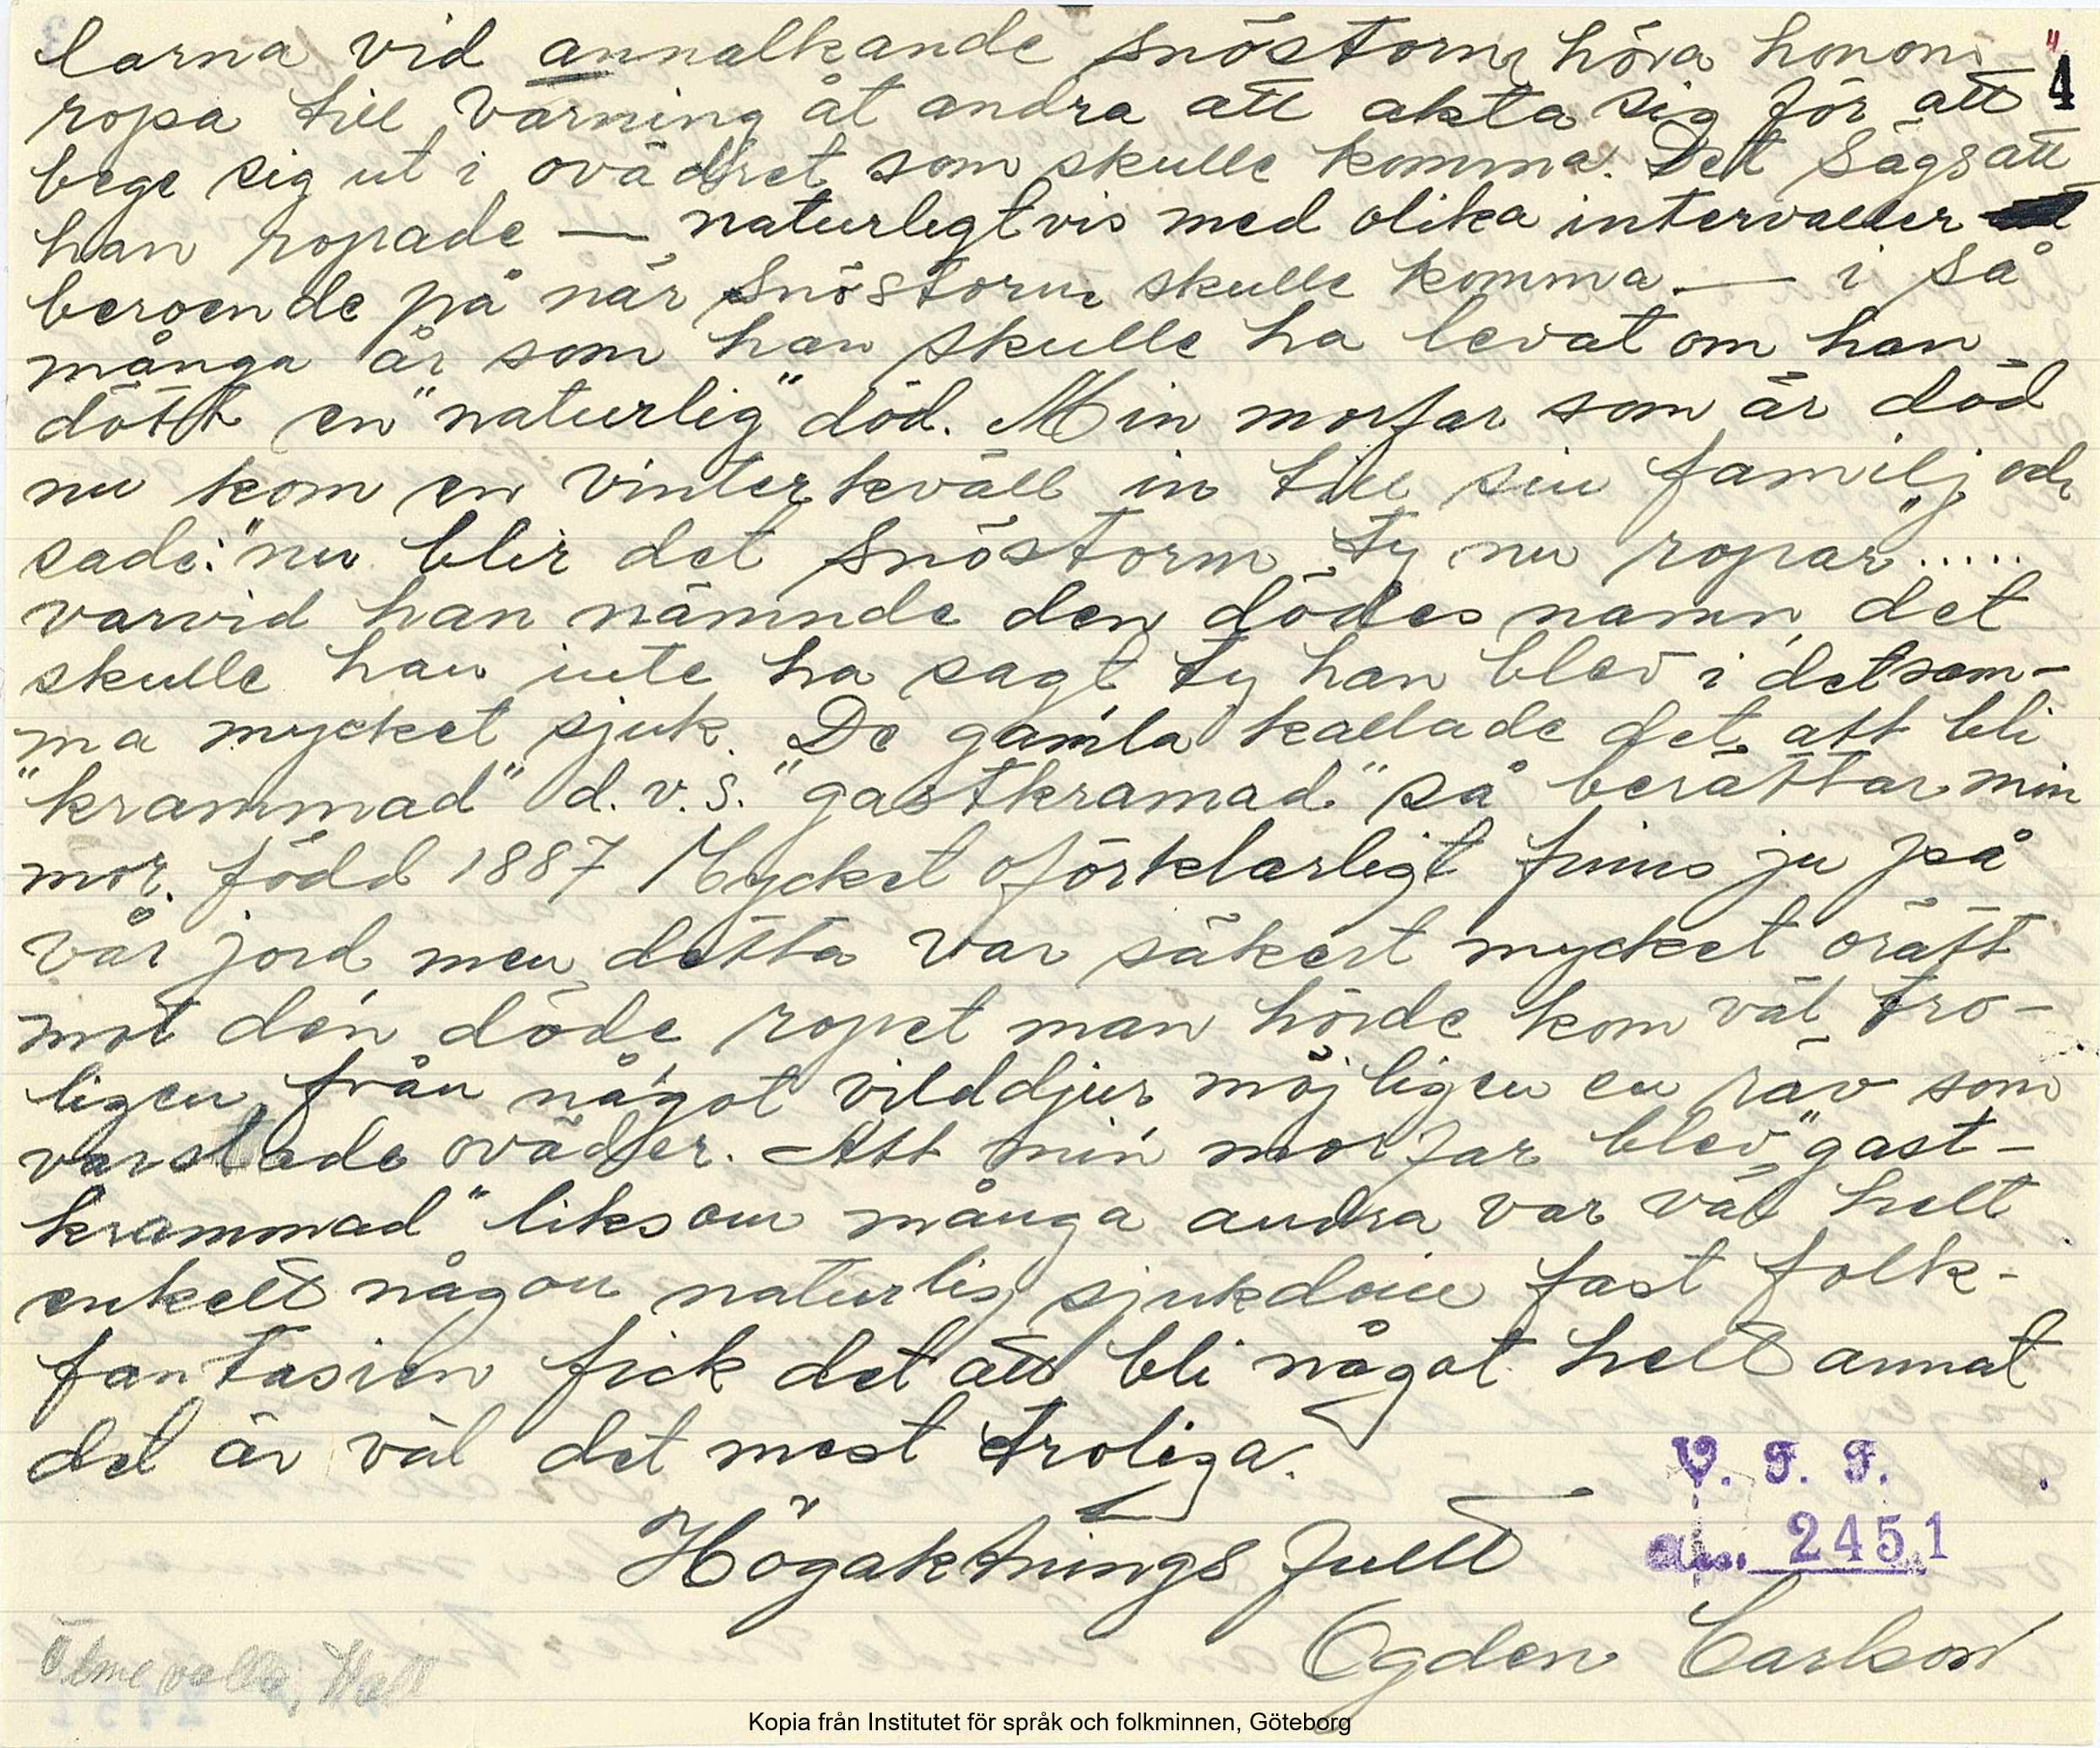 larna vid annalkande snöstorm höra honom
4
ropa till varning åt andra att akta sig för att
bege sig ut i ovädret som skulle komma. Det sägs att
han ropade — naturligtvis med olika intervaller
beroende på när snöstorm skulle komma — i så
många år som han skulle ha levat om han
dött en "naturlig" död. Min morfar som är död
nu kom en vinterkväll in till sin familj och
sade: "nu blir det snöstorm ty nu ropar" .....
varvid han nämnde den dödes namn, det
skulle han inte ha sagt ty han blev i detsam-
ma mycket sjuk. De gamla kallade det att bli
"krammad" d.v.s. "gastkramad" så berättar min
mor. född 1887 Mycket oförklarligt finns ju på
vår jord men detta var säkert mycket orätt
mot den döde ropet man hörde kom väl tro-
ligen från något vilddjur möjligen en räv som
varslade oväder. Att min morfar blev "gast-
krammad" liksom många andra var väl helt
enkelt någon naturlig sjukdom fast folk-
fantasien fick det att bli något helt annat
det är väl det mest troliga.
V. F. F.
Högaktningsfullt
2451
Ogden Carlson
Ölmevalla, Hall
Kopia från Institutet för språk och folkminnen, Göteborg